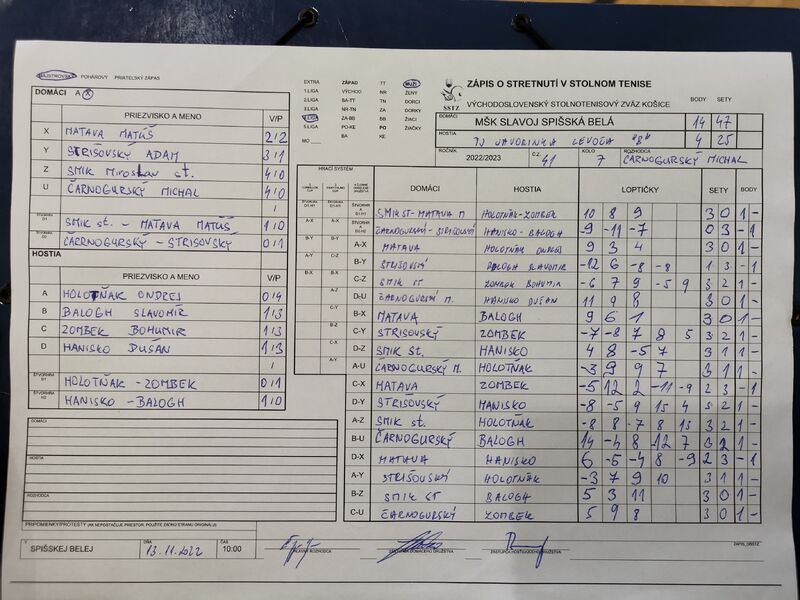 MAJSTROVSKÝ POHÁROVÝ PRIATEĽSKÝ ZÁPAS
DOMÁCI A X
PRIEZVISKO A MENO V/P
X MATAVA MATÚŠ 2/2
Y STRIŠOVSKÝ ADAM 3/1
Z SMIK Miroslav st. 4/0
U ČARNOGURSKÝ MICHAL 4/0
/
ŠTVORHRA D1 SMIK st. - MATAVA MATÚŠ 1/0
ŠTVORHRA D2 ČARNOGURSKÝ - STRIŠOVSKÝ 0/1
HOSTIA
PRIEZVISKO A MENO V/P
A HOLOTŇAK ONDREJ 0/4
B BALOGH SLAVOMÍR 1/3
C ZOMBEK BOHUMIR 1/3
D HANISKO DUŠÁN 1/3
/
ŠTVORHRA H1 HOLOTŇAK - ZOMBEK 0/1
ŠTVORHRA H2 HANISKO - BALOGH 1/0
DOMÁCI
HOSTIA
ROZHODCA
PRIPOMIENKY/PROTESTY (AK NEPOSTAČUJE PRIESTOR, POUŽITE ZADNÚ STRANU ORIGINÁLU)
EXTRA ZÁPAD TT MUŽI
1.LIGA VÝCHOD NR ŽENY
2.LIGA BA-TT TN DORCI
3.LIGA NR-TN ZA DORKY
4.LIGA ZA-BB BB ŽIACI
5.LIGA PO-KE PO ŽIAČKY
MO BA KE
SSTZ
ZÁPIS O STRETNUTÍ V STOLNOM TENISE
VÝCHODOSLOVENSKÝ STOLNOTENISOVÝ ZVÄZ KOŠICE
BODY SETY
DOMÁCI MŠK SLAVOJ SPIŠSKÁ BELÁ 14 47
HOSTIA TJ JAVORINKA LEVOČA "B" 4 25
ROČNÍK 2022/2023 ČZ. 41 KOLO 7 ROZHODCA ČARNOGURSKÝ MICHAL
HRACÍ SYSTÉM
DOMÁCI HOSTIA LOPTIČKY SETY BODY
SMIK ST-MATAVA M HOLOTŇAK-ZOMBEK 10 8 9 3 0 1 -
ČARNOGURSKÝ - STRIŠOVSKÝ HANISKO - BALOGH -9 -11 -7 0 3 - 1
A-X MATAVA HOLOTŇAK ONDREJ 9 3 4 3 0 1 -
B-Y STRIŠOVSKÝ BALOGH SLAVOMIR -12 6 -8 -8 1 3 - 1
C-Z SMIK ST ZOMBEK BOHUMIR -6 7 9 -5 9 3 2 1 -
D-U ČARNOGURSKÝ M. HANISKO DUŠAN 11 9 8 3 0 1 -
B-X MATAVA BALOGH 9 6 1 3 0 1 -
C-Y STRIŠOVSKÝ ZOMBEK -7 -8 7 8 5 3 2 1 -
D-Z SMIK St. HANISKO 4 8 -5 7 3 1 1 -
A-U ČARNOGURSKÝ M. HOLOTŇAK -3 9 9 7 3 1 1 -
C-X MATAVA ZOMBEK -5 12 2 -11 -9 2 3 - 1
D-Y STRIŠOVSKÝ HANISKO -8 -5 9 15 4 3 2 1 -
A-Z SMIK st. HOLOTŇAK -8 8 -7 8 13 3 2 1 -
B-U ČARNOGURSKÝ BALOGH 14 -4 8 -12 7 3 2 1 -
D-X MATAVA HANISKO 6 -5 -4 8 -9 2 3 - 1
A-Y STRIŠOVSKÝ HOLOTŇAK -3 7 9 10 3 1 1 -
B-Z SMIK ST BALOGH 5 3 11 3 0 1 -
C-U ČARNOGURSKÝ ZOMBEK 5 9 8 3 0 1 -
V SPIŠSKEJ BELEJ DŇA 13.11.2022 ČAS 10:00
HLAVNÝ ROZHODCA ZÁSTUPCA DOMÁCEHO DRUŽSTVA ZÁSTUPCA HOSŤUJÚCEHO DRUŽSTVA